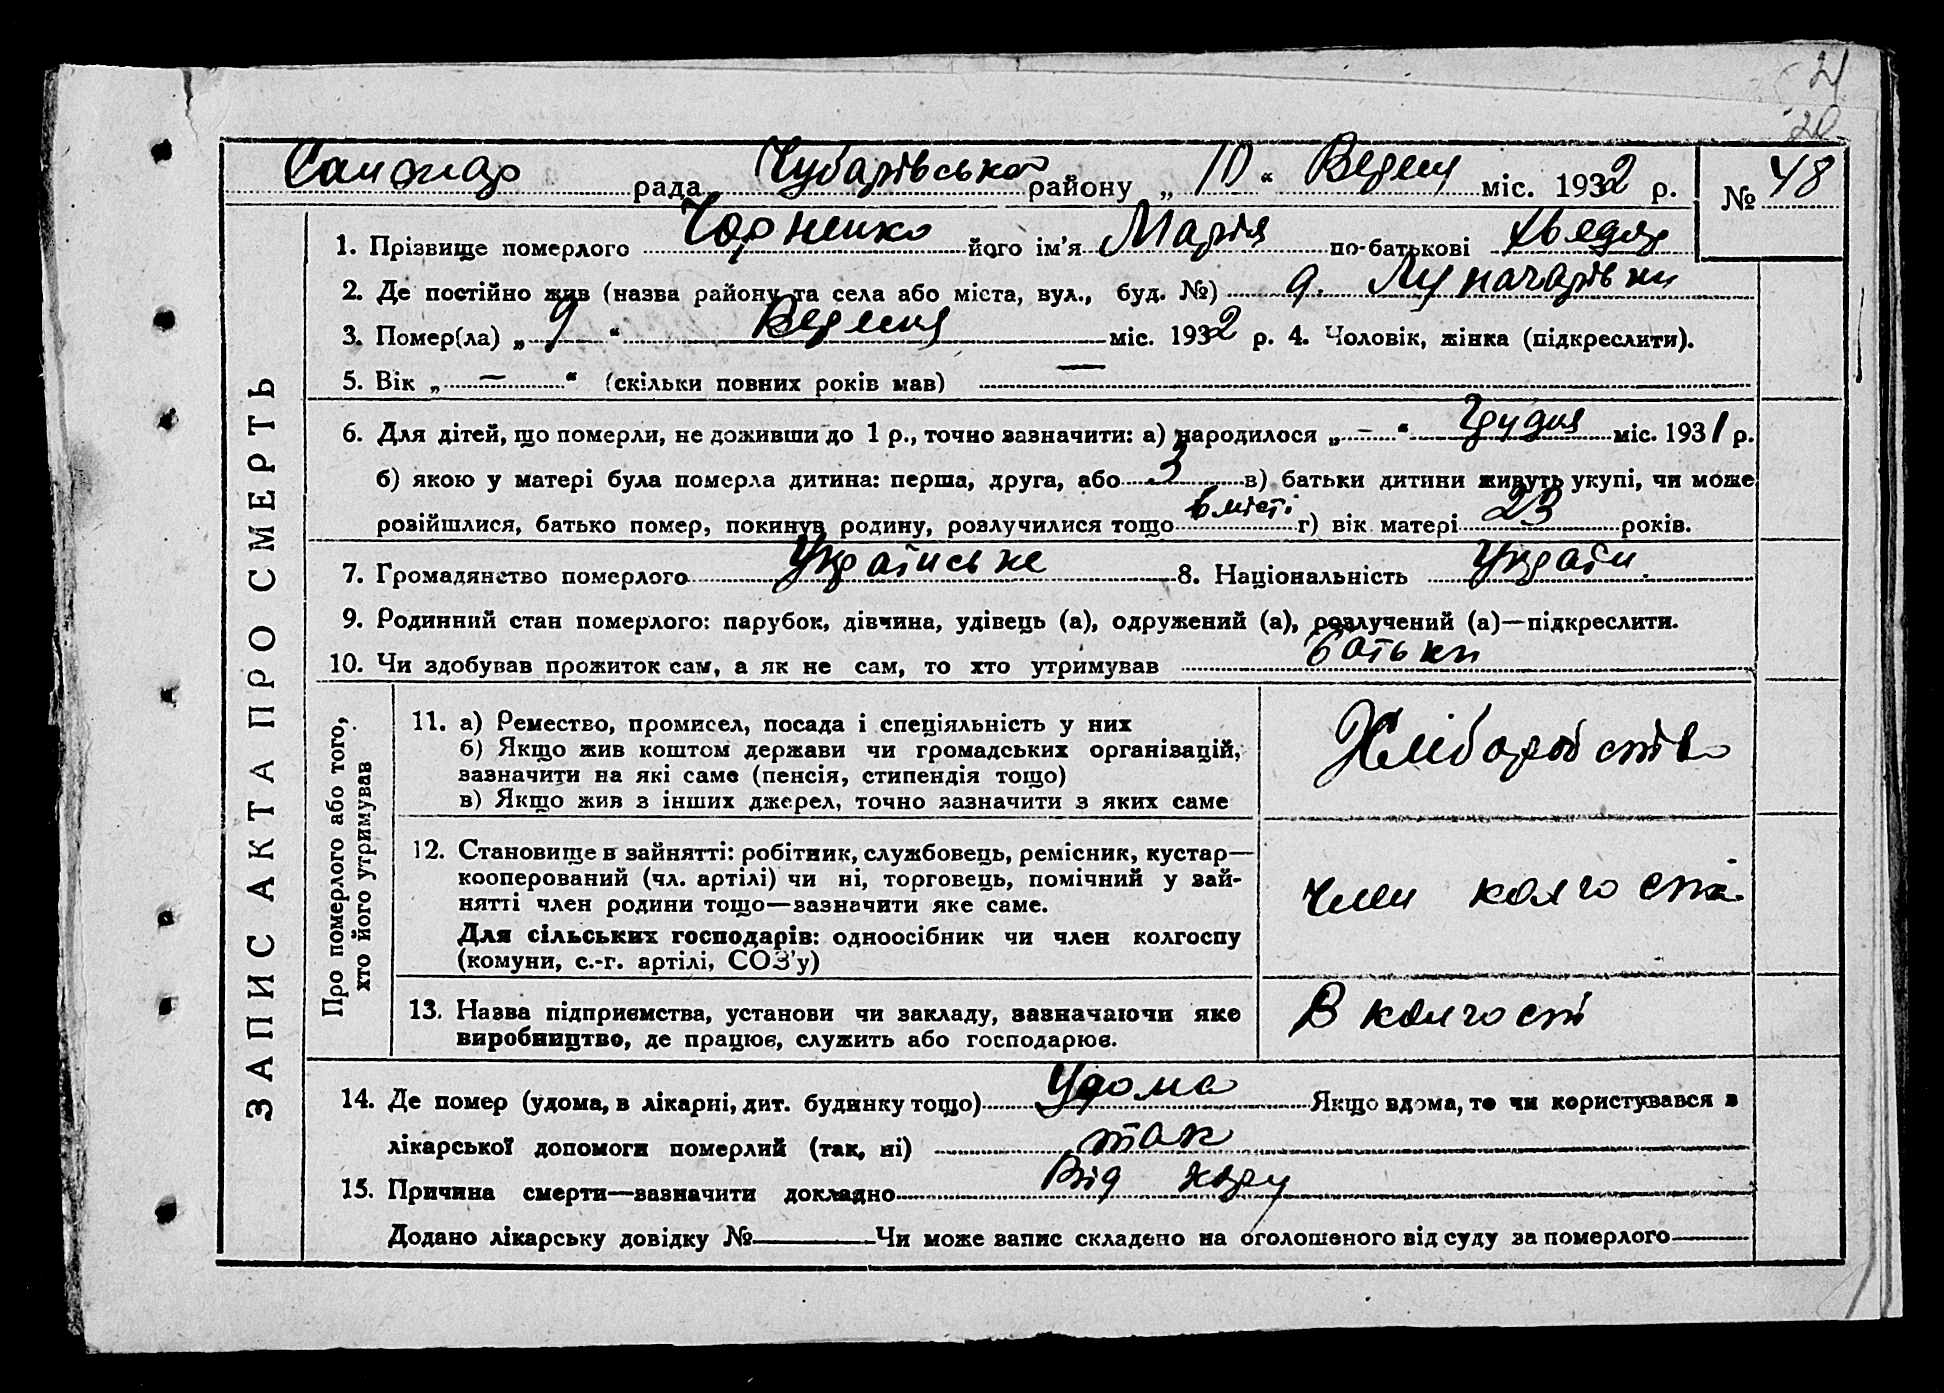 21
20
рада Чубарівська району „ 10 “ Вересня міс. 1932 р. № 48
1. Прізвище померлого Чорненко його ім'я Марія по-батькові Хведор
2. Де постійно жив (назва району та села або міста, вул., буд. №) Луначарівки
3. Помер(ла) „ 9 “ Вересня міс. 1932 р. 4. Чоловік, жінка (підкреслити).
5. Вік „ — “ (скільки повних років мав) —
6. Для дітей, що померли, не доживши до 1 р., точно зазначити: а) народилося „ – “ Грудня міс. 1931 р.
б) якою у матері була померла дитина: перша, друга, або 3 в) батьки дитини живуть укупі, чи може
розійшлися, батько помер, покинув родину, розлучилися тощо вмісті г) вік матері 23 років.
7. Громадянство померлого Українське 8. Національність Україн.
9. Родинний стан померлого: парубок, дівчина, удівець (а), одружений (а), розлучений (а)—підкреслити.
10. Чи здобував прожиток сам, а як не сам, то хто утримував батьки
ЗАПИС АКТА ПРО СМЕРТЬ
Про померлого або того,
хто його утримував
11. а) Ремество, промисел, посада і спеціяльність у них
б) Якщо жив коштом держави чи громадських організацій,
зазначити на які саме (пенсія, стипендія тощо)
в) Якщо жив з інших джерел, точно зазначити з яких саме
Хліборобство
12. Становище в зайнятті: робітник, службовець, ремісник, кустар—
кооперований (чл. артілі) чи ні, торговець, помічний у зай-
нятті член родини тощо—зазначити яке саме.
Для сільських господарів: одноосібник чи член колгоспу
(комуни, с.-г. артілі, СОЗ'у)
член колгоспа
13. Назва підприємства, установи чи закладу, зазначаючи яке
виробництво, де працює, служить або господарює.
В колгоспі
14. Де помер (удома, в лікарні, дит. будинку тощо) Удома Якщо вдома, то чи користувався з
лікарської допомоги померлий (так, ні) так
15. Причина смерти—зазначити докладно Від кору
Додано лікарську довідку № — Чи може запис складено на оголошеного від суду за померлого —